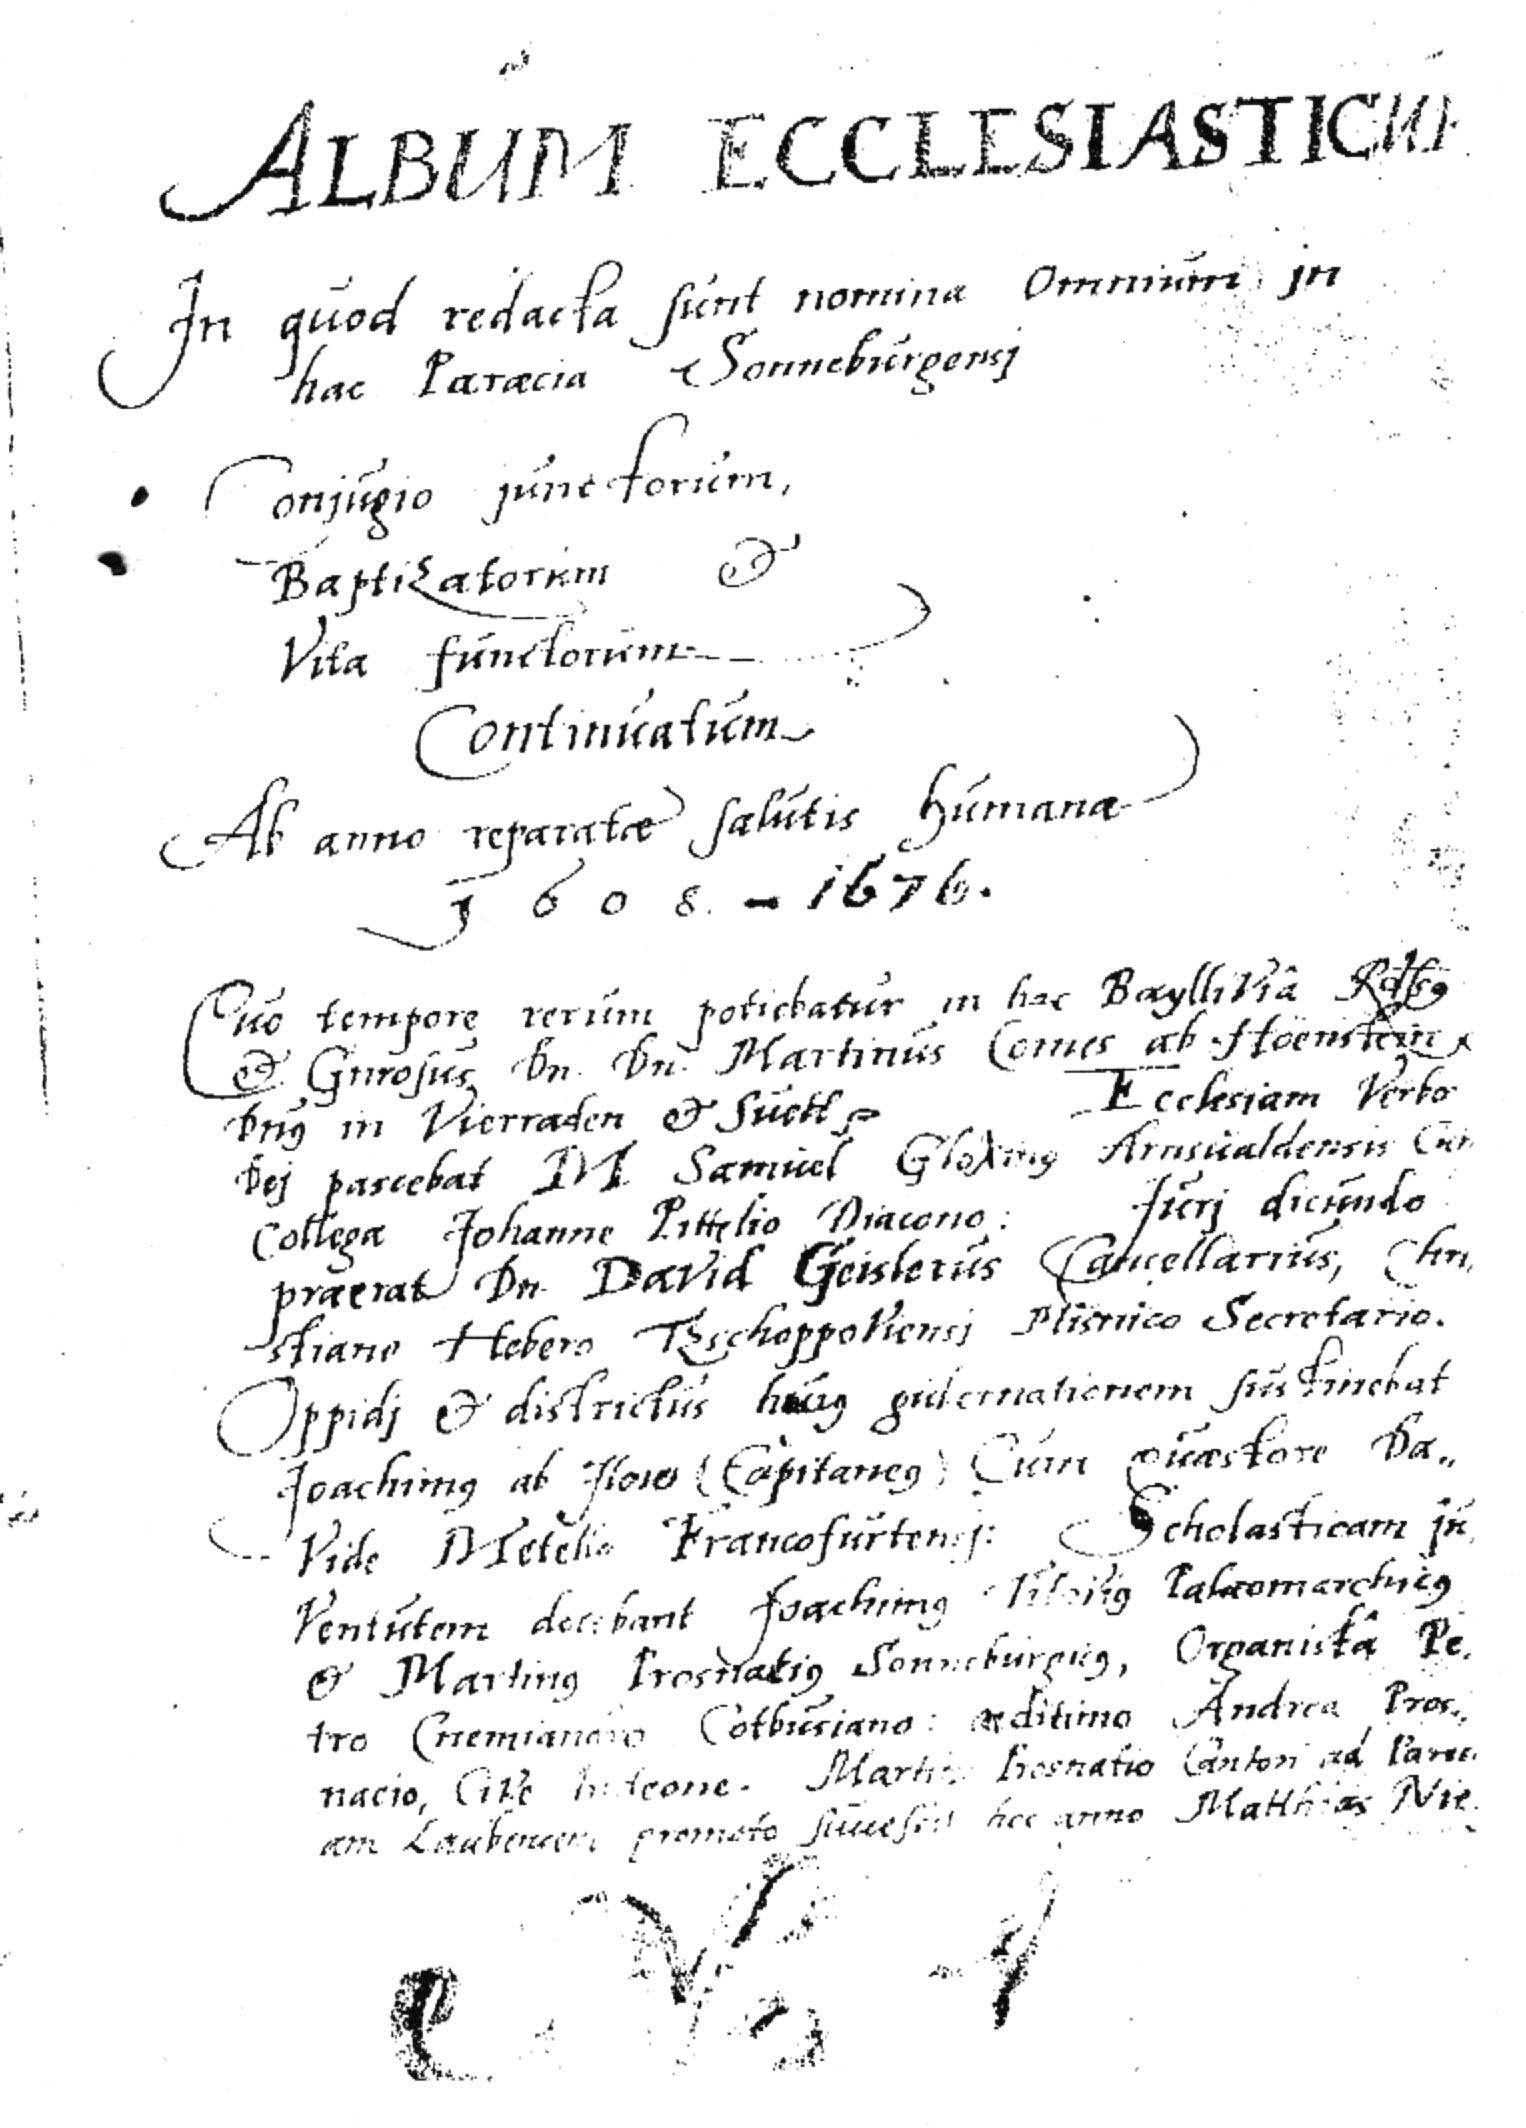 ALBUM ECCLESIASTICUM
In quod redacta sunt nomina Omnium in
hac Parœcia Sonneburgensj
Conjugio junctorum,
Baptizatorum &
Vita functorum
Continuatum
Ab anno reparatæ salutis humanæ
1608. - 1676.
Quo tempore rerum potiebatur in hac Baylliviâ
& Gnrosus Dn. Dn. Martinus Comes ab Hoenstein
Dnꝰ in Vierraden & Suett Ecclesiam Verbo
Dej pascebat M Samuel Gloxinꝰ Arnsualdensis Cum
Collega Johanne Pittelio Diacono: Jurj dicundo
præerat Dn. David Geislerus Cancellarius, Chri
stiano Hebero Tzschoppoviensj Misnico Secretario.
Oppidj & districtus huiꝰ gubernationem sustinebat
Joachimꝰ ab (Capitaneꝰ) Cum quæstore Da„
vide Metelio Francofurtensj: Scholasticam ju
ventutem docebant Joachimꝰ Palæomarchicꝰ
& Martinꝰ Prosnatiꝰ Sonneburgicꝰ, Organistâ Pe.
tro Cnemiandro Cotbusiano: æditimo Andrea Pros„
nacio, Cive Martino Prosnatio Cantori ad
am promoto hoc anno Matthias Nie